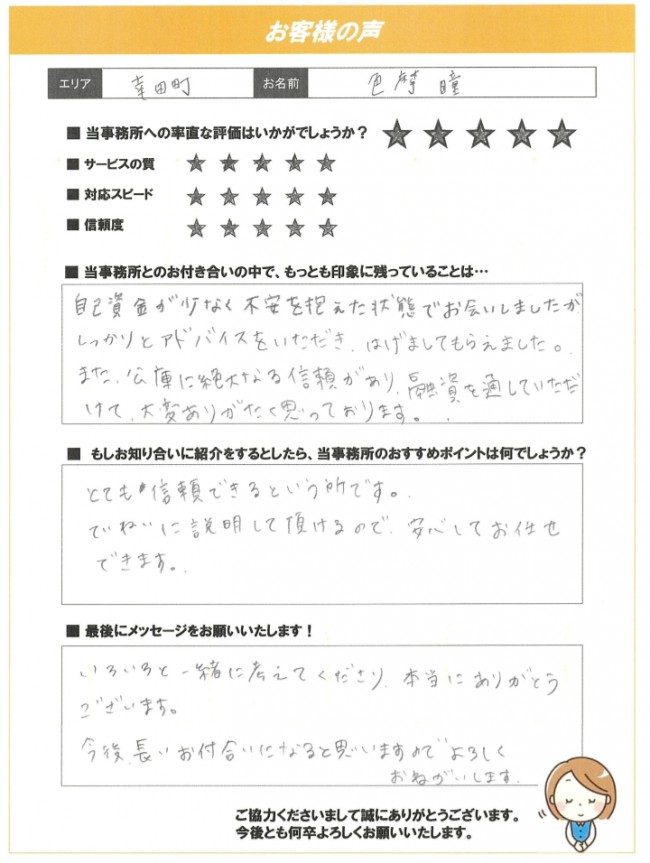 お客様の声
エリア 幸田町 お名前 色摩 瞳
■ 当事務所への率直な評価はいかがでしょうか？ ★ ★ ★ ★ ★
■ サービスの質 ★ ★ ★ ★ ★
■ 対応スピード ★ ★ ★ ★ ★
■ 信頼度 ★ ★ ★ ★ ★
■ 当事務所とのお付き合いの中で、もっとも印象に残っていることは…
自己資金が少なく不安を抱えた状態でお会いしましたが
しっかりとアドバイスをいただき、はげましてもらえました。
また、公庫に絶大なる信頼があり、融資を通していただ
けて、大変ありがたく思っております。
■ もしお知り合いに紹介をするとしたら、当事務所のおすすめポイントは何でしょうか？
とても信頼できるという所です。
ていねいに説明して頂けるので、安心してお任せ
できます。
■ 最後にメッセージをお願いいたします！
いろいろと一緒に考えてくださり、本当にありがとう
ございます。
今後、長いお付合いになると思いますので よろしく
おねがいします。
ご協力くださいまして誠にありがとうございます。
今後とも何卒よろしくお願いいたします。